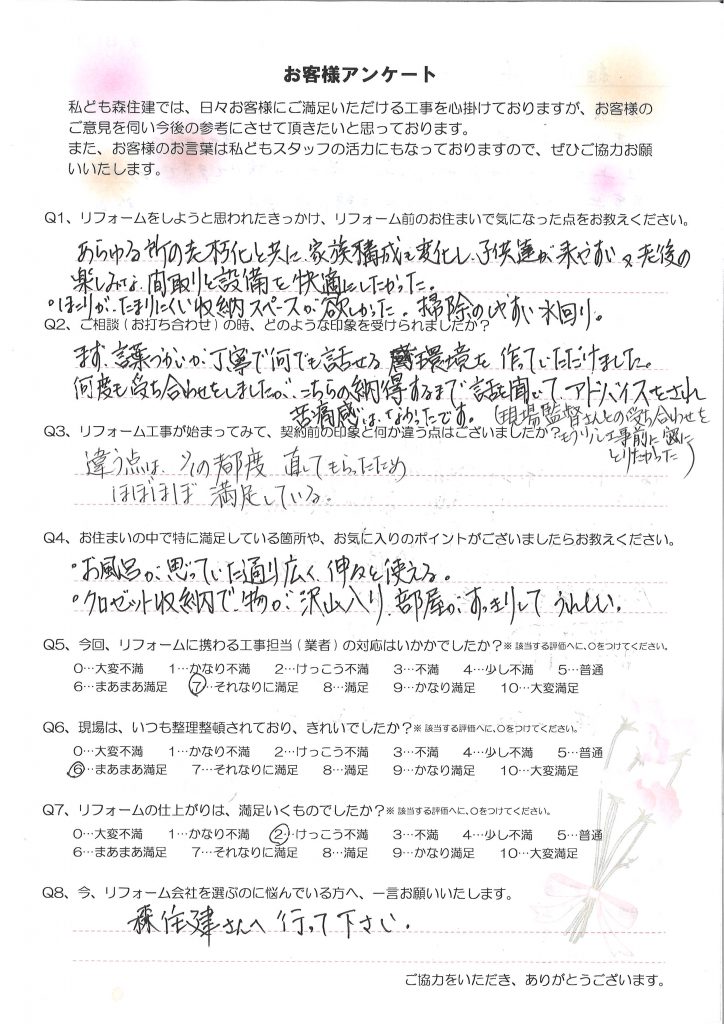 お客様アンケート
私ども森住建では、日々お客様にご満足いただける工事を心掛けておりますが、お客様の
ご意見を伺い今後の参考にさせて頂きたいと思っております。
また、お客様のお言葉は私どもスタッフの活力にもなっておりますので、ぜひご協力お願
いいたします。
Q1、リフォームをしようと思われたきっかけ、リフォーム前のお住まいで気になった点をお教えください。
あらゆる所の老朽化と共に、家族構成も変化し、子供達が来やすい又老後の
楽しみな、間取りと設備を快適にしたかった。
・ほこりが、たまりにくい収納スペースが欲しかった。掃除のしやすい水回り。
Q2、ご相談(お打ち合わせ)の時、どのような印象を受けられましたか?
まず、言葉づかいが、丁寧で何でも話せる環境を作っていただけました。
何度も打ち合わせをしましたが、こちらの納得するまで話を聞いてアドバイスをされ
苦痛感は、なかったです。(現場監督さんとの打ち合わせを
もう少し工事前に密に
とりたかった)
Q3、リフォーム工事が始まってみて、契約前の印象と何か違う点はございましたか?
違う点は、その都度 直してもらったため
ほぼほぼ 満足している。
Q4、お住まいの中で特に満足している箇所や、お気に入りのポイントがございましたらお教えください。
・お風呂が思っていた通り広く、伸々と使える。
・クロゼット収納で、物が沢山入り、部屋がすっきりして うれしい。
Q5、今回、リフォームに携わる工事担当(業者)の対応はいかがでしたか?※該当する評価へに、〇をつけてください。
0…大変不満 1…かなり不満 2…けっこう不満 3…不満 4…少し不満 5…普通
6…まあまあ満足 7…それなりに満足 8…満足 9…かなり満足 10…大変満足
Q6、現場は、いつも整理整頓されており、きれいでしたか?※該当する評価へに、〇をつけてください。
0…大変不満 1…かなり不満 2…けっこう不満 3…不満 4…少し不満 5…普通
6…まあまあ満足 7…それなりに満足 8…満足 9…かなり満足 10…大変満足
Q7、リフォームの仕上がりは、満足いくものでしたか?※該当する評価へに、〇をつけてください。
0…大変不満 1…かなり不満 2…けっこう不満 3…不満 4…少し不満 5…普通
6…まあまあ満足 7…それなりに満足 8…満足 9…かなり満足 10…大変満足
Q8、今、リフォーム会社を選ぶのに悩んでいる方へ、一言お願いいたします。
森住建さんへ 行って下さい。
ご協力をいただき、ありがとうございます。